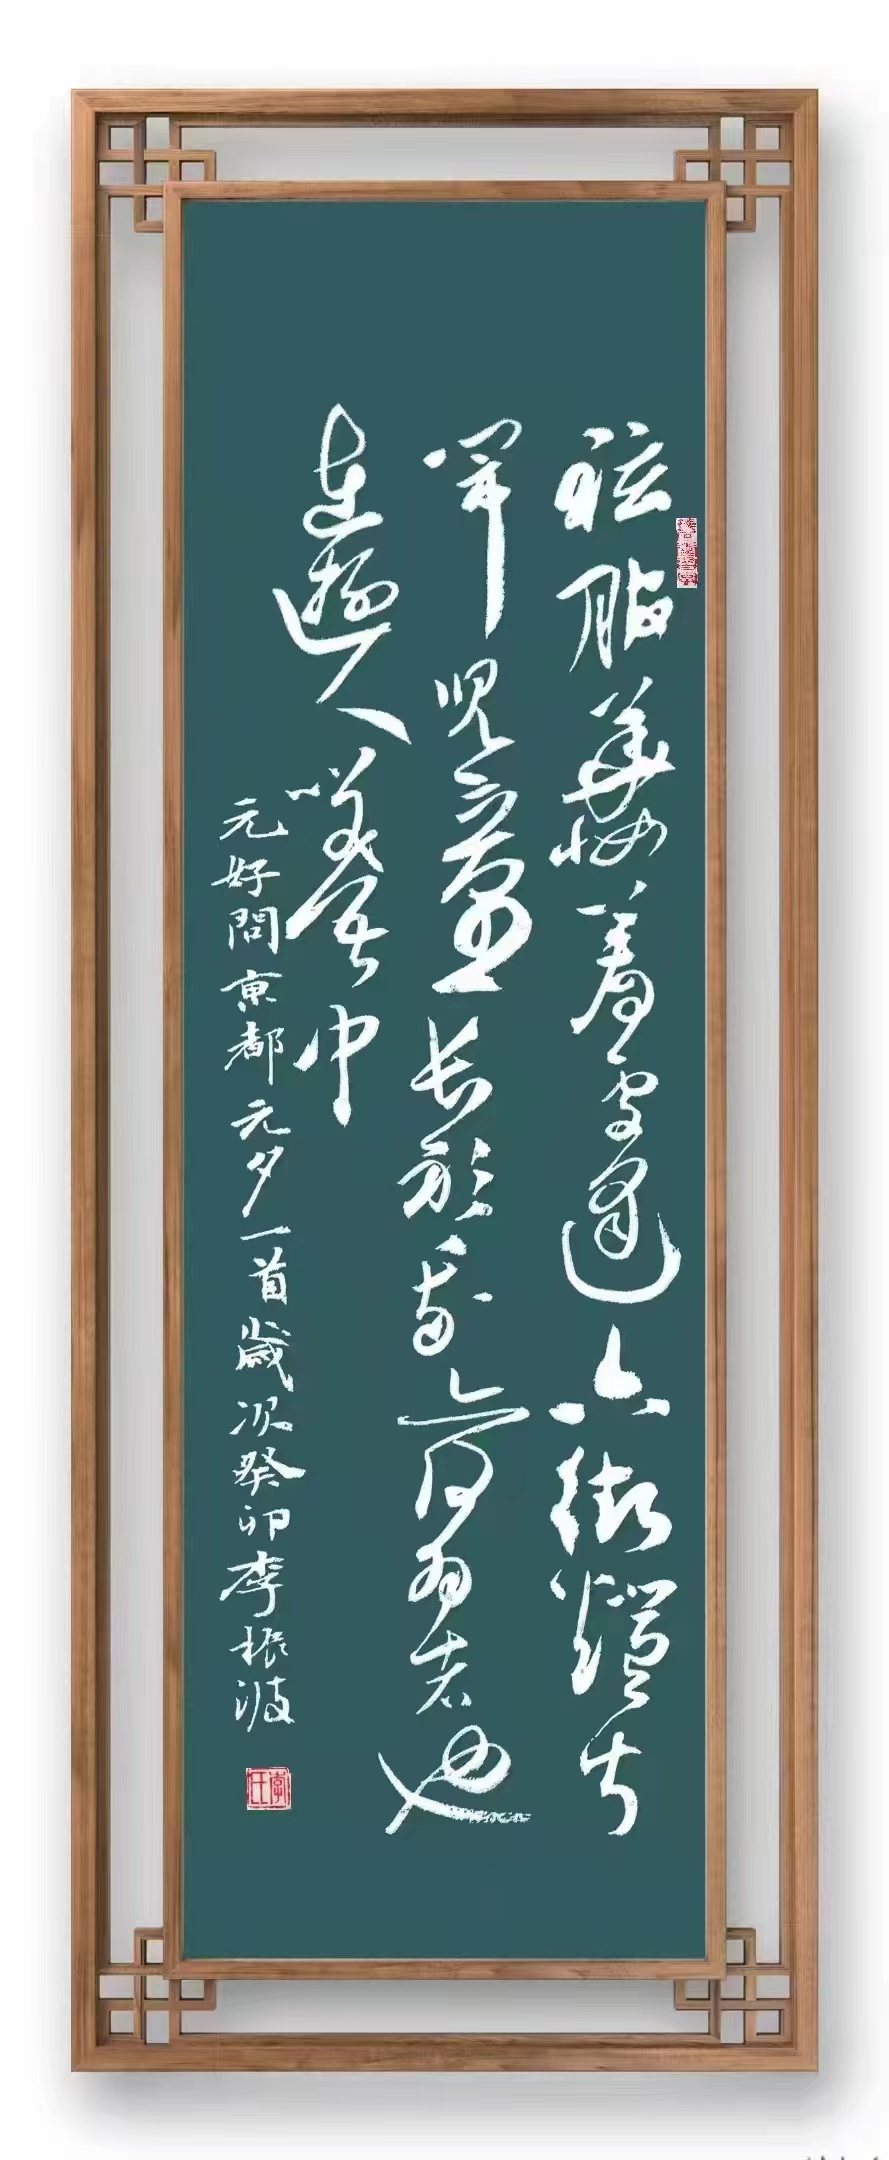 袨服華妝着處逢六街燈火
鬧兒童長衫我亦何為者也
在遊人笑語中
元好問京都元夕一首歲次癸卯李振波
李氏